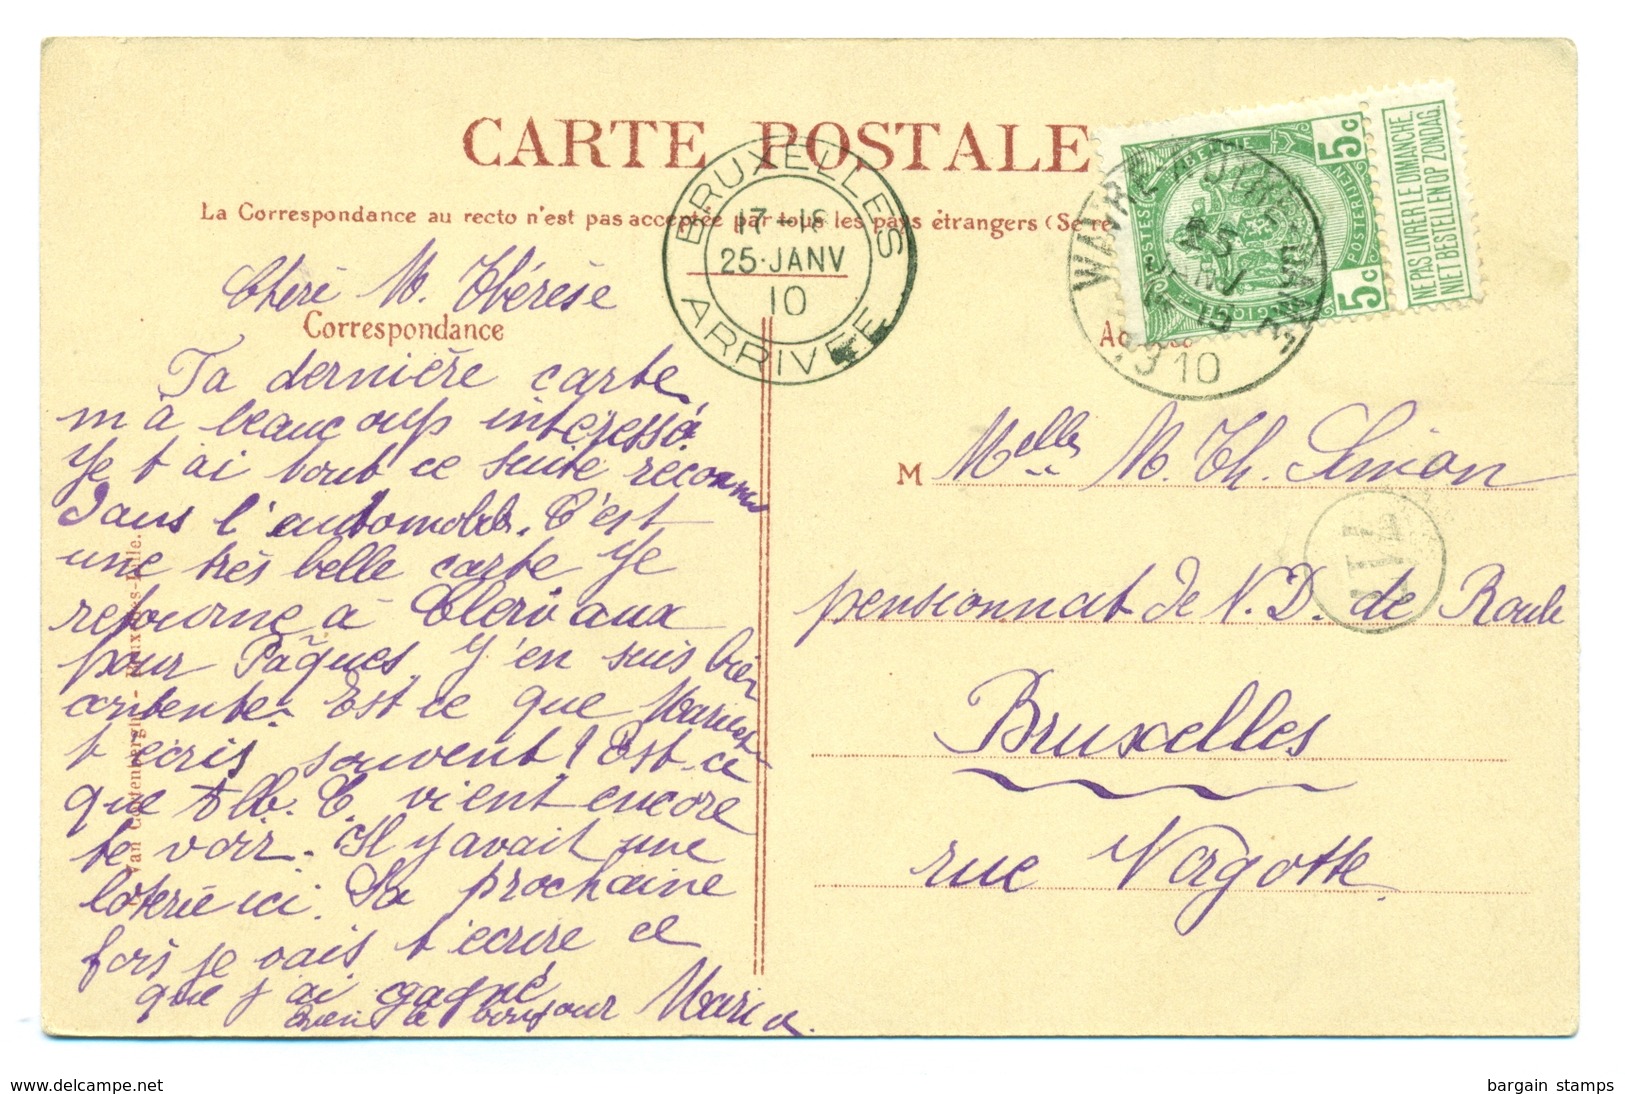 CARTE POSTALE
La Correspondance au recto n'est pas acceptée par tous les pays étrangers (Se re
BRUXELLES
17-18
25·JANV
10
ARRIVÉE
25
JANV
10
POSTES
BELGIQUE
POSTERIJEN
5c
5c
NE PAS LIVRER LE DIMANCHE.
NIET BESTELLEN OP ZONDAG.
Chère M. Thérèse
Correspondance
Ta dernière carte
m'a beaucoup intéressé.
Je t'ai tout ce suite reconnu
dans l'automobile. C'est
une très belle carte Je
retourne à Clervaux
pour Pâques. J'en suis bien
contente. Est ce que Mariette
t'écris souvent! Est-ce
que Alb. C. vient encore
te voir. Il y avait une
loterie ici. La prochaine
fois je vais t'écrire ce
que j'ai gagné
bien le bonjour Maria.
M elle M. Th. Simon
pensionnat de N. D. de Roule
Bruxelles
rue Vergotte
bargain stamps
www.delcampe.net